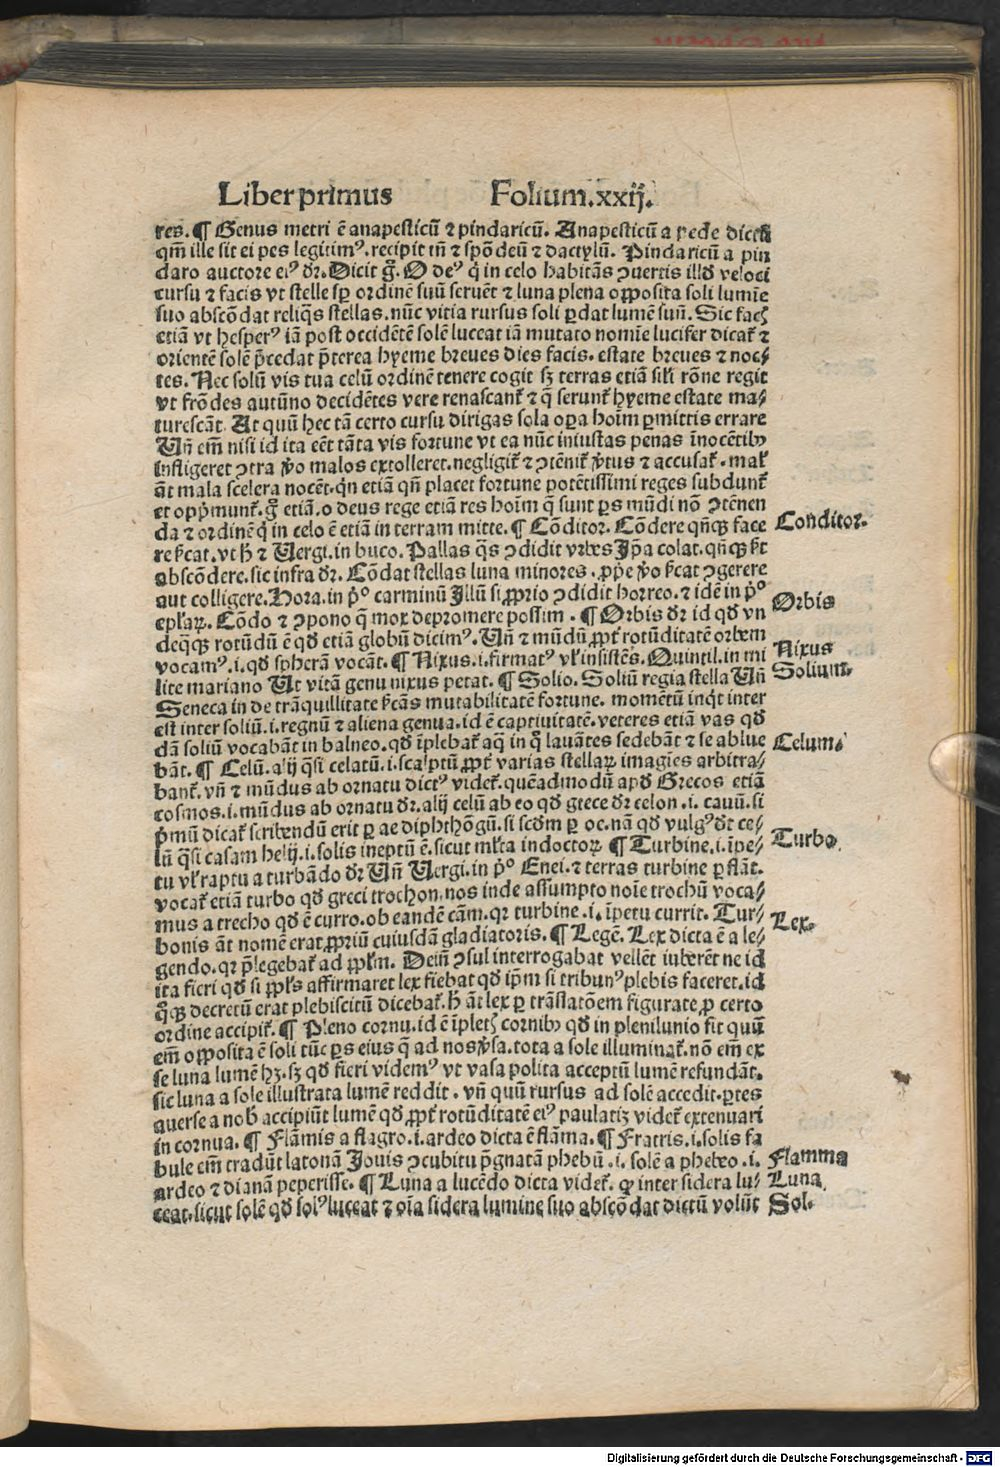 Liber primus Folium.xxij.
res. ¶ Genus metri ē anapesticū ⁊ pindaricū. Anapesticū a pede dictū
qm̄ ille sit ei pes legitimꝰ. recipit tn̄ ⁊ spōdeū ⁊ dactylū. Pindaricū a pin
daro auctore eiꝰ dr̄. Dicit gͦ. O deꝰ q̇ in celo habitās ꝯuertis illd̄ veloci
cursu ⁊ facis vt stelle sꝑ ordinē suū seruēt ⁊ luna plena opposita soli lumīe
suo abscōdat reliq̄s stellas. nūc vitia rursus soli ꝑdat lumē suū. Sic facꝭ
etiā vt hesperꝰ iā post occidētē solē luceat iā mutato nomīe lucifer dicat̄ ⁊
orientē solē p̄cedat p̄terea hyeme breues dies facis. estate breues ⁊ noc⸗
tes. Nec solū vis tua celū ordinē tenere cogit sꝫ terras etiā sil'i rōne regit
vt frōdes autūno decidētes vere renascant̄ ⁊ q̄ serunt̄ hyeme estate ma⸗
turescāt. At quū hec tā certo cursu dirigas sola oꝑa hoīm ꝑmittis errare
Un̄ em̄ nisi id ita eēt tāta vis fortune vt ea nūc iniustas penas īnocētibꝰ
infligeret ꝯtra v̊o malos extolleret. negligit̄ ⁊ ꝯtēnit̄ v̊tus ⁊ accusat̄. mal'
āt mala scelera nocēt. qn̄ etiā qn̄ placet fortune potētissimi reges subdunt̄
et opp̄munt̄. gͦ etiā. o deus rege etiā res hoīm q̄ sunt ꝑs mūdi nō ꝯtēnen
da ⁊ ordinē q̇ in celo ē etiā in terram mitte. ¶ Cōditor. Cōdere qn̄qꝫ face
re s̄cat. vt h̄ ⁊ Uergi. in buco. Pallas q̄s ꝯdidit vrbes Ip̄a colat. qn̄qꝫ s̄t
abscōdere. sic infra dr̄. Cōdat stellas luna minores. ꝓp̄e v̊o s̄cat ꝯgerere
aut colligere. Hora. in p̊ carminū Illū si ꝓprio ꝯdidit horreo. ⁊ idē in p̊
epl'aꝝ. Cōdo ⁊ ꝯpono q̄ mox depromere possim. ¶ Orbis dr̄ id qd̄ vn
deq̄qꝫ rotūdū ē qd̄ etiā globū dicimꝰ. Un̄ ⁊ mūdū ꝓpt̄ rotūditatē orbem
vocamꝰ. i. qd̄ spherā vocāt. ¶ Nixus. i. firmatꝰ vl' insistēs. Quintil. in mi
lite mariano Ut vitā genu nixus petat. ¶ Solio. Soliū regia stella Un̄
Seneca in de trāquillitate s̄cās mutabilitatē fortune. momētū inq̇t inter
est inter soliū. i. regnū ⁊ aliena genua. id ē captiuitatē. veteres etiā vas qd̄
dā soliū vocabāt in balneo. qd̄ īplebat̄ aq̄ in q̊ lauātes sedebāt ⁊ se ablue
bāt. ¶ Celū. alij q̄si celatū. i. scalptū ꝓpt̄ varias stellaꝝ imagīes arbitra⸗
bant̄. vn̄ ⁊ mūdus ab ornatu dictꝰ videt̄. quēadmodū apd̄ Grecos etiā
cosmos. i. mūdus ab ornatu dr̄. alij celū ab eo qd̄ grece dr̄ celon. i. cauū. si
p̄mū dicat̄ scribendū erit ꝑ ae diphthōgū. si scd̄m ꝑ oe. nā qd̄ vulgꝰ dt̄ ce⸗
lū q̄si casam helij. i. solis ineptū ē. sicut ml'ta indoctoꝝ ¶ Turbine. i. īpe⸗
tu vl' raptu a turbādo dr̄ Un̄ Uergi. in p̊ Enei. ⁊ terras turbine ꝑflāt.
vocat̄ etiā turbo qd̄ greci trochon. nos inde assumpto noīe trochū voca⸗
mus a trecho qd̄ ē curro. ob eandē cām. qꝛ turbine. i. īpetu currit. Tur⸗
bonis āt nomē erat ꝓpriū cuiusdā gladiatoris. ¶ Legē. Lex dicta ē a le⸗
gendo. qꝛ p̄legebat̄ ad ppl'm. Dein̄ ꝯsul interrogabat vellēt iuberēt ne id
ita fieri qd̄ si ppl's affirmaret lex fiebat qd̄ ip̄m si tribunꝰ plebis faceret. id
q̊qꝫ decretū erat plebiscitū dicebat̄. h̄ āt lex ꝑ trāslatōem figurate ꝓ certo
ordine accipit̄. ¶ Pleno cornu. id ē īpletꝭ cornibꝰ qd̄ in plenilunio fit quū
em̄ opposita ē soli tūc ꝑs eius q̄ ad nos v̊sa. tota a sole illuminat̄. nō em̄ ex
se luna lumē hꝫ. sꝫ qd̄ fieri videmꝰ vt vasa polita acceptū lumē refundāt.
sic luna a sole illustrata lumē reddit. vn̄ quū rursus ad solē accedit. ꝑtes
auerse a nob̄ accipiūt lumē qd̄ ꝓpt̄ rotūditatē eiꝰ paulatiꝫ videt̄ extenuari
in cornua. ¶ Flāmis a flagro. i. ardeo dicta ē flāma. ¶ Fratris. i. solis fa
bule em̄ tradūt latonā Jouis ꝯcubitu p̄gnatā phebū. i. solē a phebeo. i.
ardeo ⁊ dianā peperisse. ¶ Luna a lucēdo dicta videt̄. ꝙ inter sidera lu⸗
ceat. sicut solē qd̄ solꝰ luceat ⁊ oīa sidera lumine suo abscōdat dictū volūt
Conditor.
Orbis
Nixus
Solium.
Celum.
Turbo.
Lex.
Flamma
Luna.
Sol.
Digitalisierung gefördert durch die Deutsche Forschungsgemeinschaft - DFG